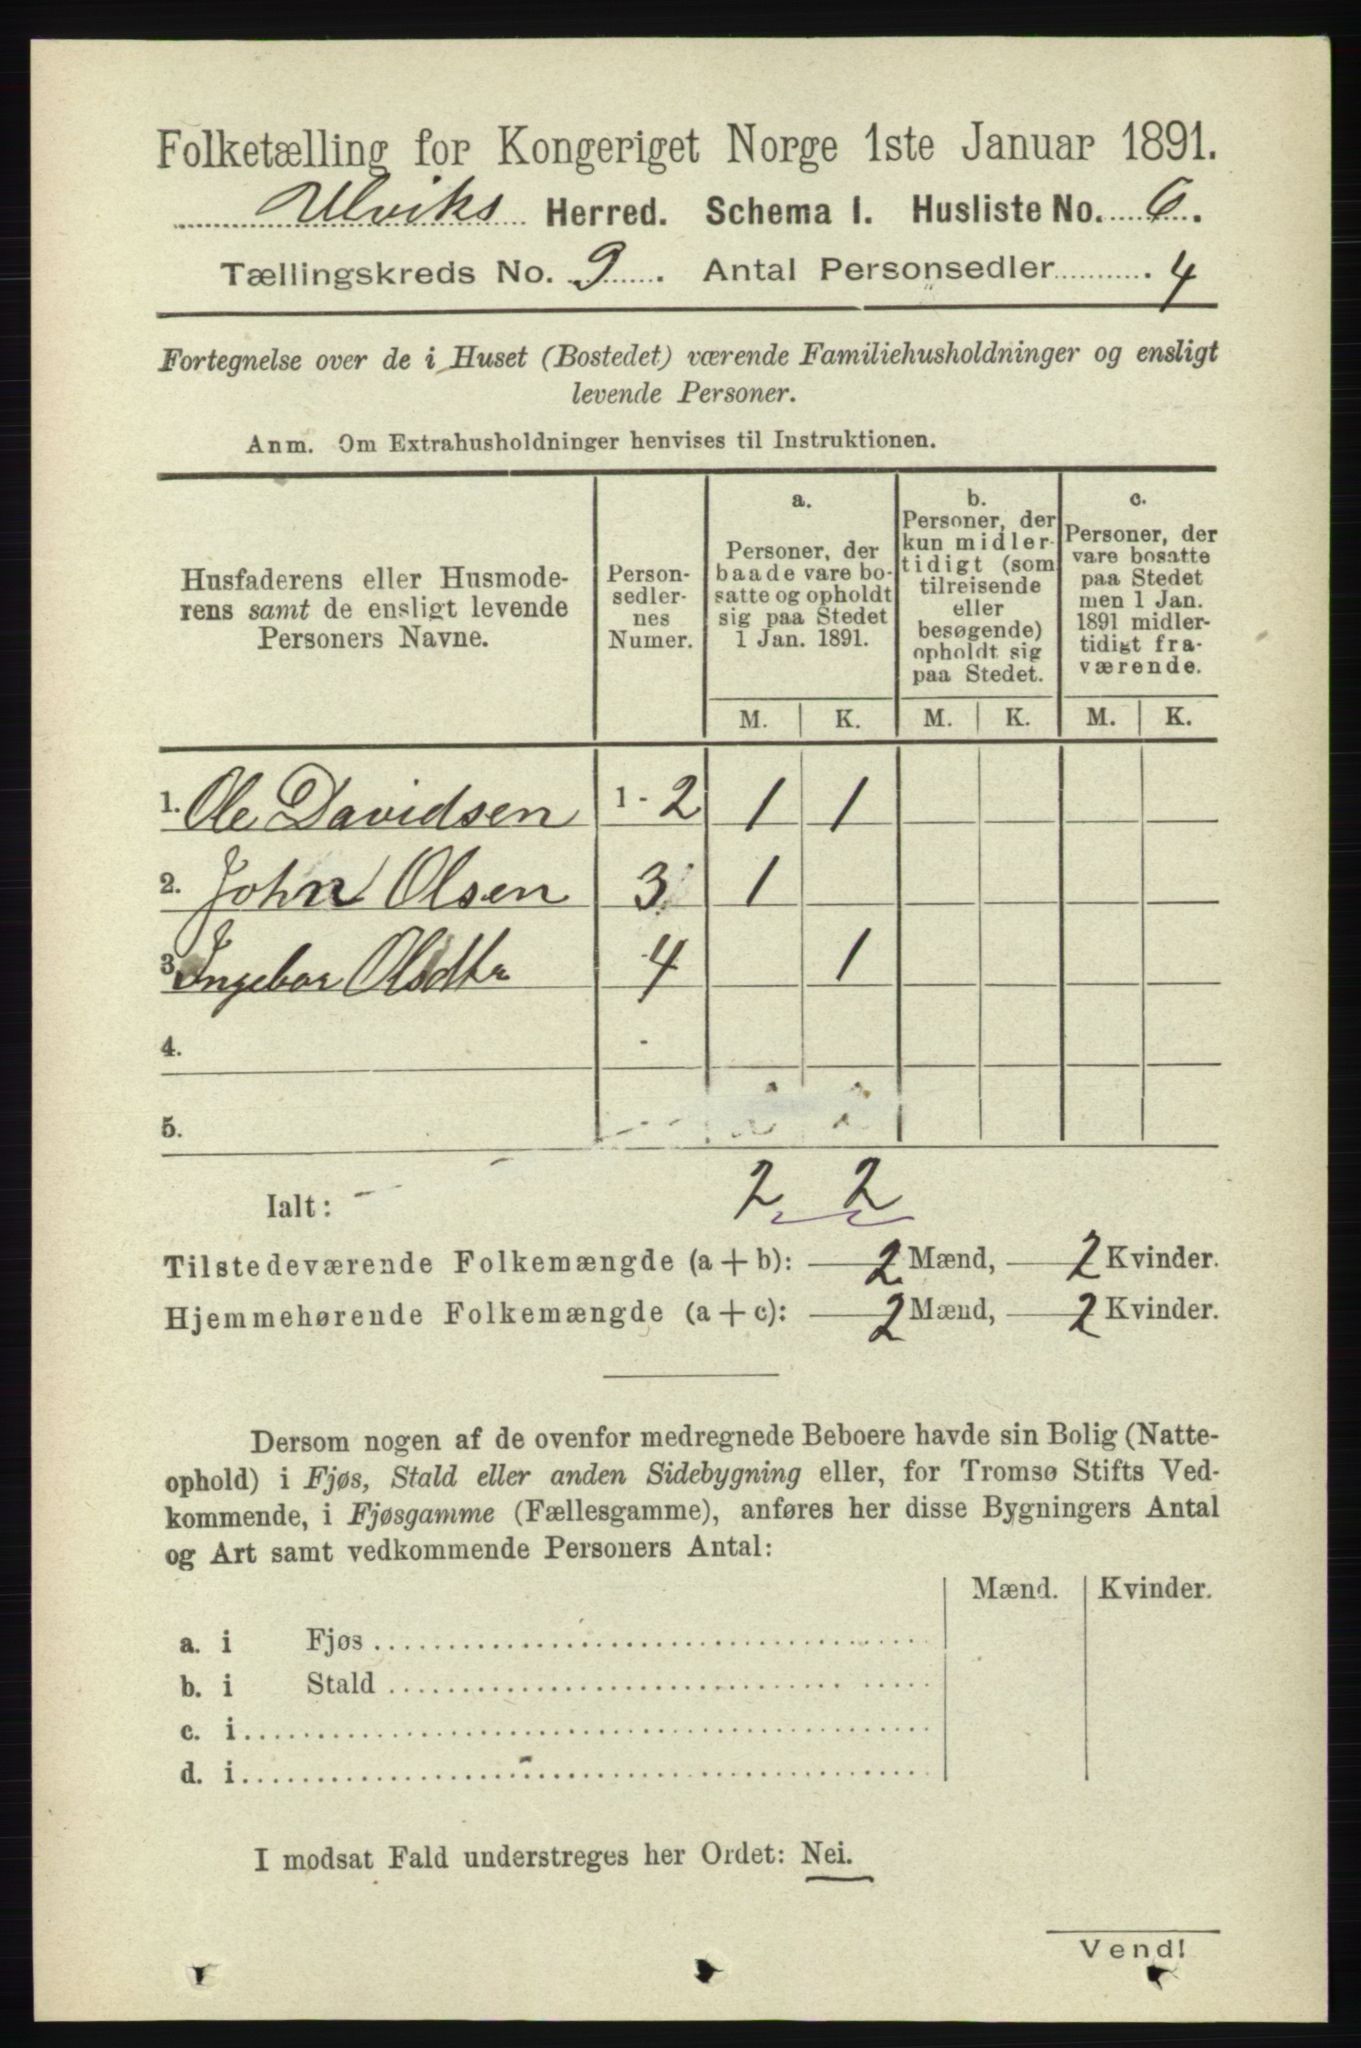 Folketælling for Kongeriget Norge 1ste Januar 1891.
Ulviks Herred. Schema I. Husliste No. 6.
Tællingskreds No. 9. Antal Personsedler 4
Fortegnelse over de i Huset (Bostedet) værende Familiehusholdninger og ensligt
levende Personer.
Anm. Om Extrahusholdninger henvises til Instruktionen.
Husfaderens eller Husmode-
rens samt de ensligt levende
Personers Navne.
Person-
sedler-
nes
Numer.
a.
Personer, der
baade vare bo-
satte og opholdt
sig paa Stedet
1 Jan. 1891.
b.
Personer, der
kun midler-
tidigt (som
tilreisende
eller
besøgende)
opholdt sig
paa Stedet.
c.
Personer, der
vare bosatte
paa Stedet
men 1 Jan.
1891 midler-
tidigt fra-
værende.
M. K. M. K. M. K.
1. Ole Davidsen 1 - 2 1 1
2. John Olsen 3 1
3. Ingebor Olsdtr 4 1
4. -
5.
Ialt: 2 2
Tilstedeværende Folkemængde (a + b): 2 Mænd, 2 Kvinder.
Hjemmehørende Folkemængde (a + c): 2 Mænd, 2 Kvinder.
Dersom nogen af de ovenfor medregnede Beboere havde sin Bolig (Natte-
ophold) i Fjøs, Stald eller anden Sidebygning eller, for Tromsø Stifts Ved-
kommende, i Fjøsgamme (Fællesgamme), anføres her disse Bygningers Antal
og Art samt vedkommende Personers Antal:
Mænd. Kvinder.
a. i Fjøs
b. i Stald
c. i
d. i
I modsat Fald understreges her Ordet: Nei.
Vend!